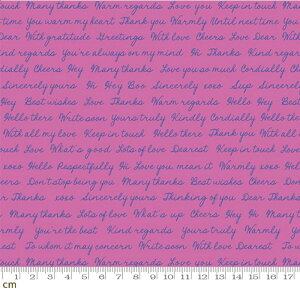 ouch Many thanks Warm regards Love you Keep in touch
time You warm my heart Thank you Warmly Until next time You
Dear With gratitude Greetings With love Cheers Love Dear With
ind regards You're always on my mind Hi Thanks Kind regar
dially Cheers Hey Many thanks Love you so much Cordially C
Sincerely yours Hi Hey Boo Sincerely xoxo Sup Sincerel
Hey Best wishes Love Thanks Warm regards Hello Hey
Hello there Write soon Yours truly Kindly Cordially Hello the
With all my love Keep in touch Hello there Thank you With all m
uch Love What's good Lots of love Dearest Keep in touch Love
xoxo Hello Respectfully Hi Love you, mean it Warmly xoxo He
eers Don't stop being you Many thanks Best wishes Cheers Don
r Thanks xoxo Sincerely yours Thinking of you Dear Thanks
Many thanks Lots of love What's up Cheers Hey Hi Many
rmly You're the best Kind regards Yours truly Warmly Yo
est To whom it may concern Write soon With love Dearest To w
1 2 3 4 5 6 7 8 9 10 11 12 13 14 15 16 17
cm